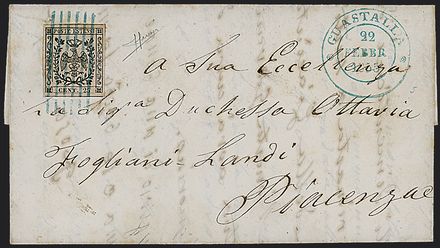 POSTE ESTENSI
CENT. 25
GUASTALLA
22
FEBBR
A Sua Eccellenza
La Sigª Duchessa Ottavia
Fogliani-Landi
Piacenza